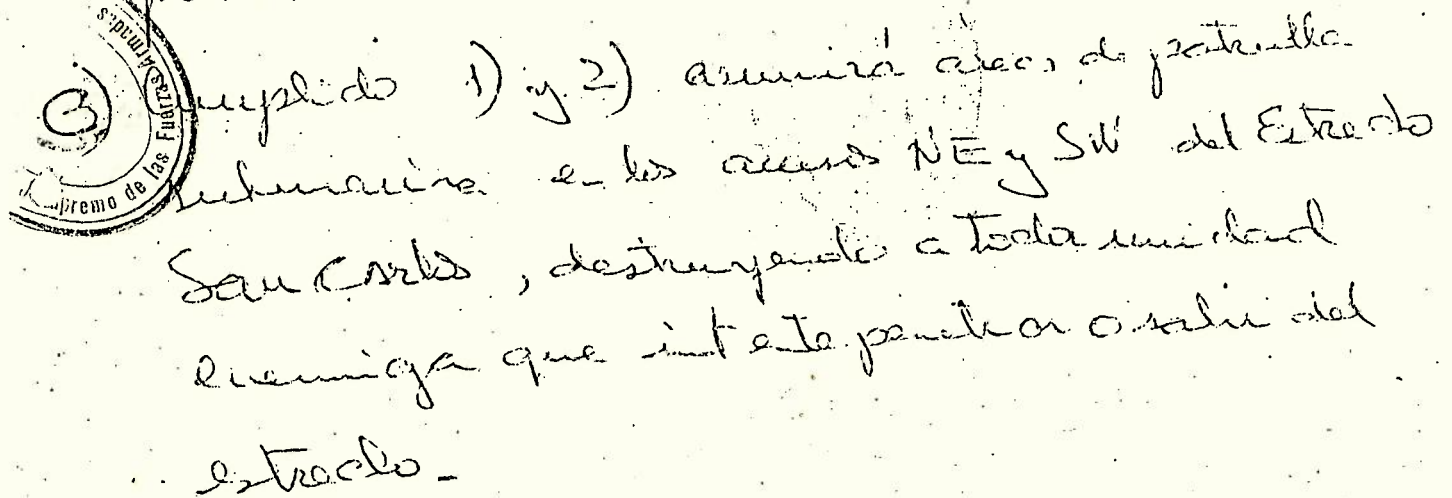 3) Cumplido 1) y 2) asumirá áreas de patrulla
submarina en los accesos NE y SW del Estrecho
San Carlos, destruyendo a toda unidad
enemiga que intente penetrar o salir del
estrecho.-
Supremo de las Fuerzas Armadas